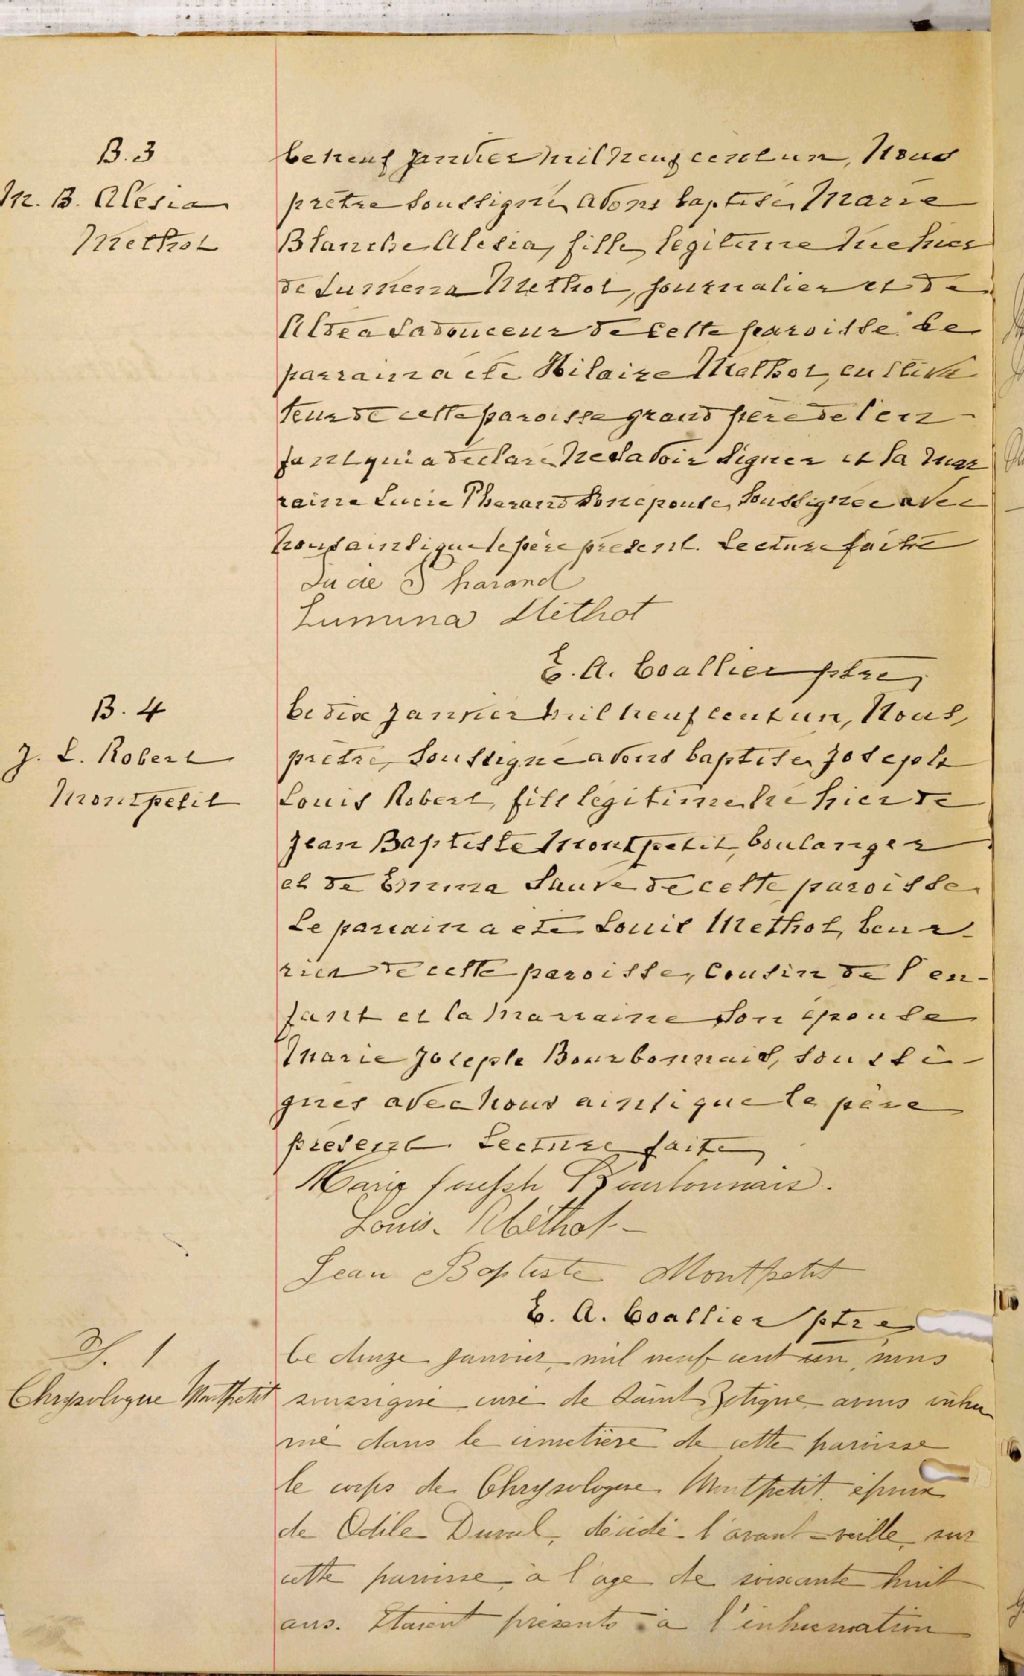 B. 3
M. B. Alésia
Methot
Le neuf janvier mil neuf cent un, Nous
prêtre soussigné, avons baptisé, Marie
Blanche Alesia, fille, legitime née hier
de Lumena Methot, journalier et de
Aldéa Ladouceur de cette paroisse Le
parrain a été Hilaire Methot, cultiva
teur de cette paroisse grand père de l'en-
fant qui a déclaré ne savoir signer et la mar
raine Lucie Pharand son épouse, soussignée avec
nous ainsi que le père présent. Lecture faite
Lucie Pharand
Lumina Methot
E. A. Coallier ptre,
B. 4
J. L. Robert
Montpetit
Le dix janvier mil neuf cent un, Nous,
prêtre, soussigné avons baptisé, Joseph
Louis Robert, fils legitime, né hier de
Jean Baptiste Montpetit, boulanger
et de Emma Sauvé de cette paroisse
Le parrain a été Louis Methot, beur-
rier de cette paroisse, cousin de l'en-
fant et la marraine son épouse
Marie Joseph Bourbonnais, soussi-
gnés avec nous ainsi que le père
présent. Lecture faite,
Marie Joseph Bourbonnais.
Louis Méthot
Jean Baptiste Montpetit
E. A. Coallier ptre
S. 1
Chrysologue Montpetit
Le douze janvier, mil neuf cent un, nous
soussigné curé de Saint Zotique avons inhu
mé dans le cimetière de cette paroisse
le corps de Chrysologue Montpetit, époux
de Odile Duval, décédé l'avant-veille, sur
cette paroisse, à l'age de soixante huit
ans. Etaient présents à l'inhumation